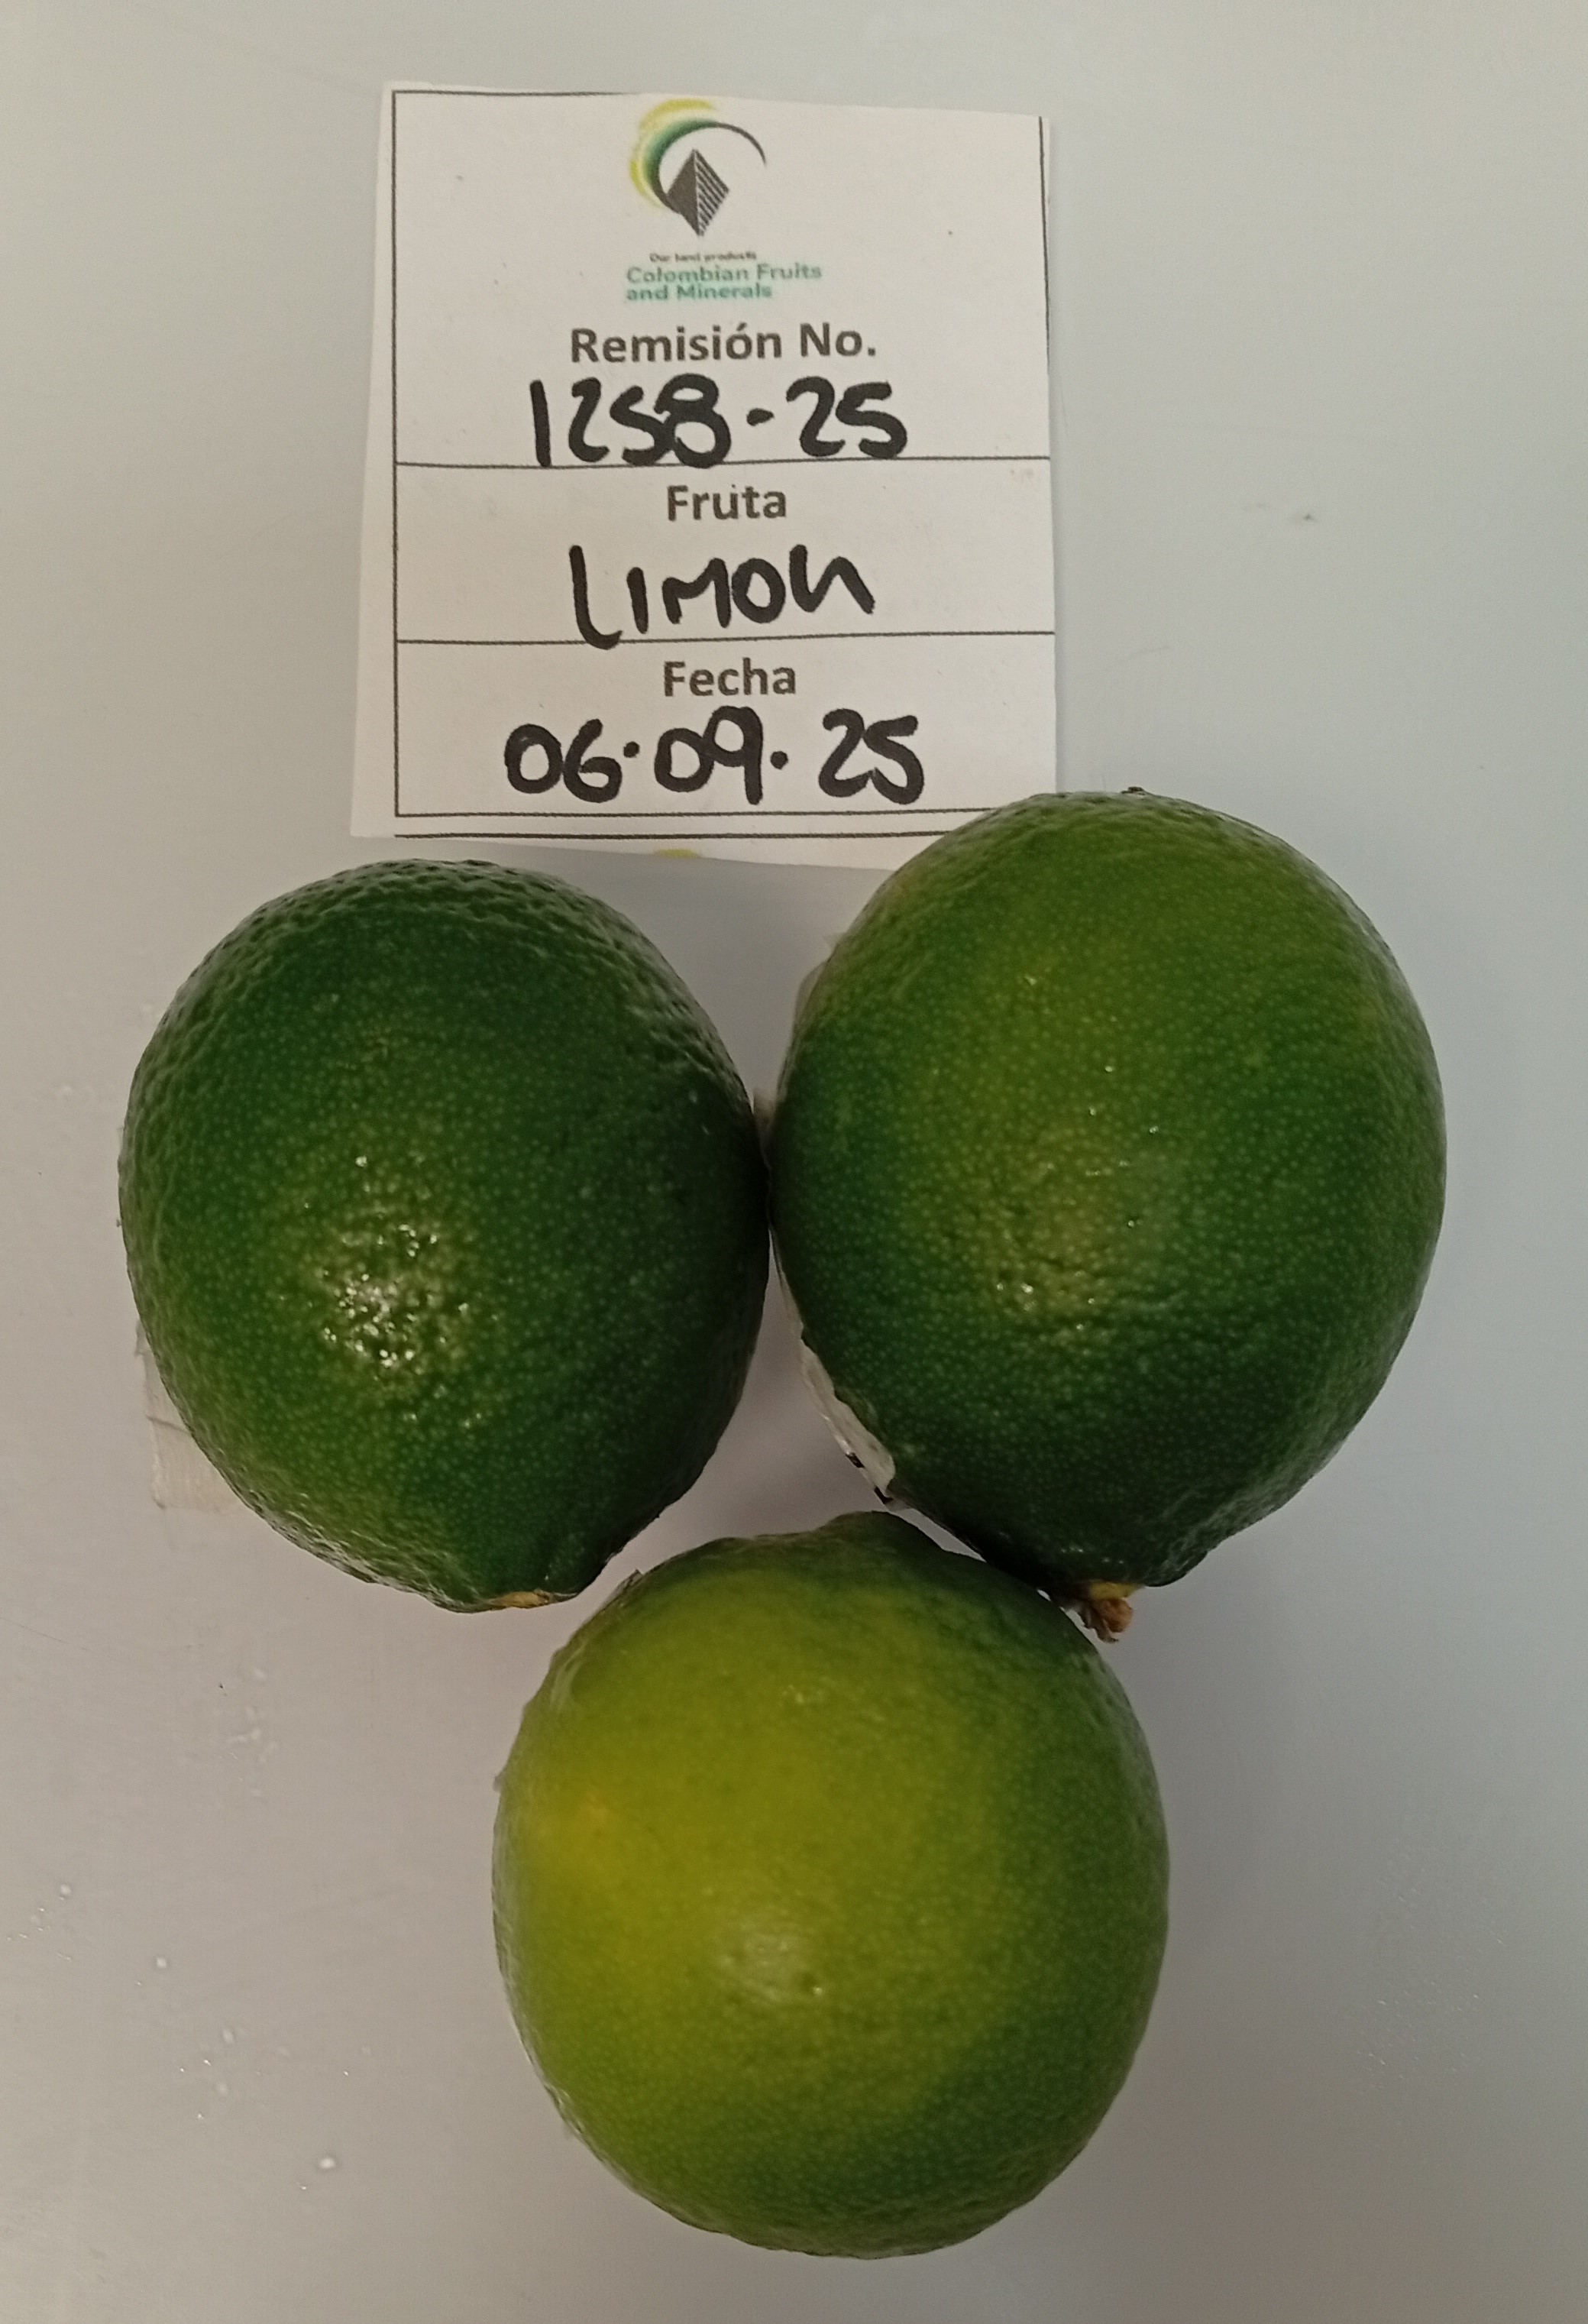 Our land products
Colombian Fruits
and Minerals
Remisión No.
1258-25
Fruta
LIMON
Fecha
06.09.25